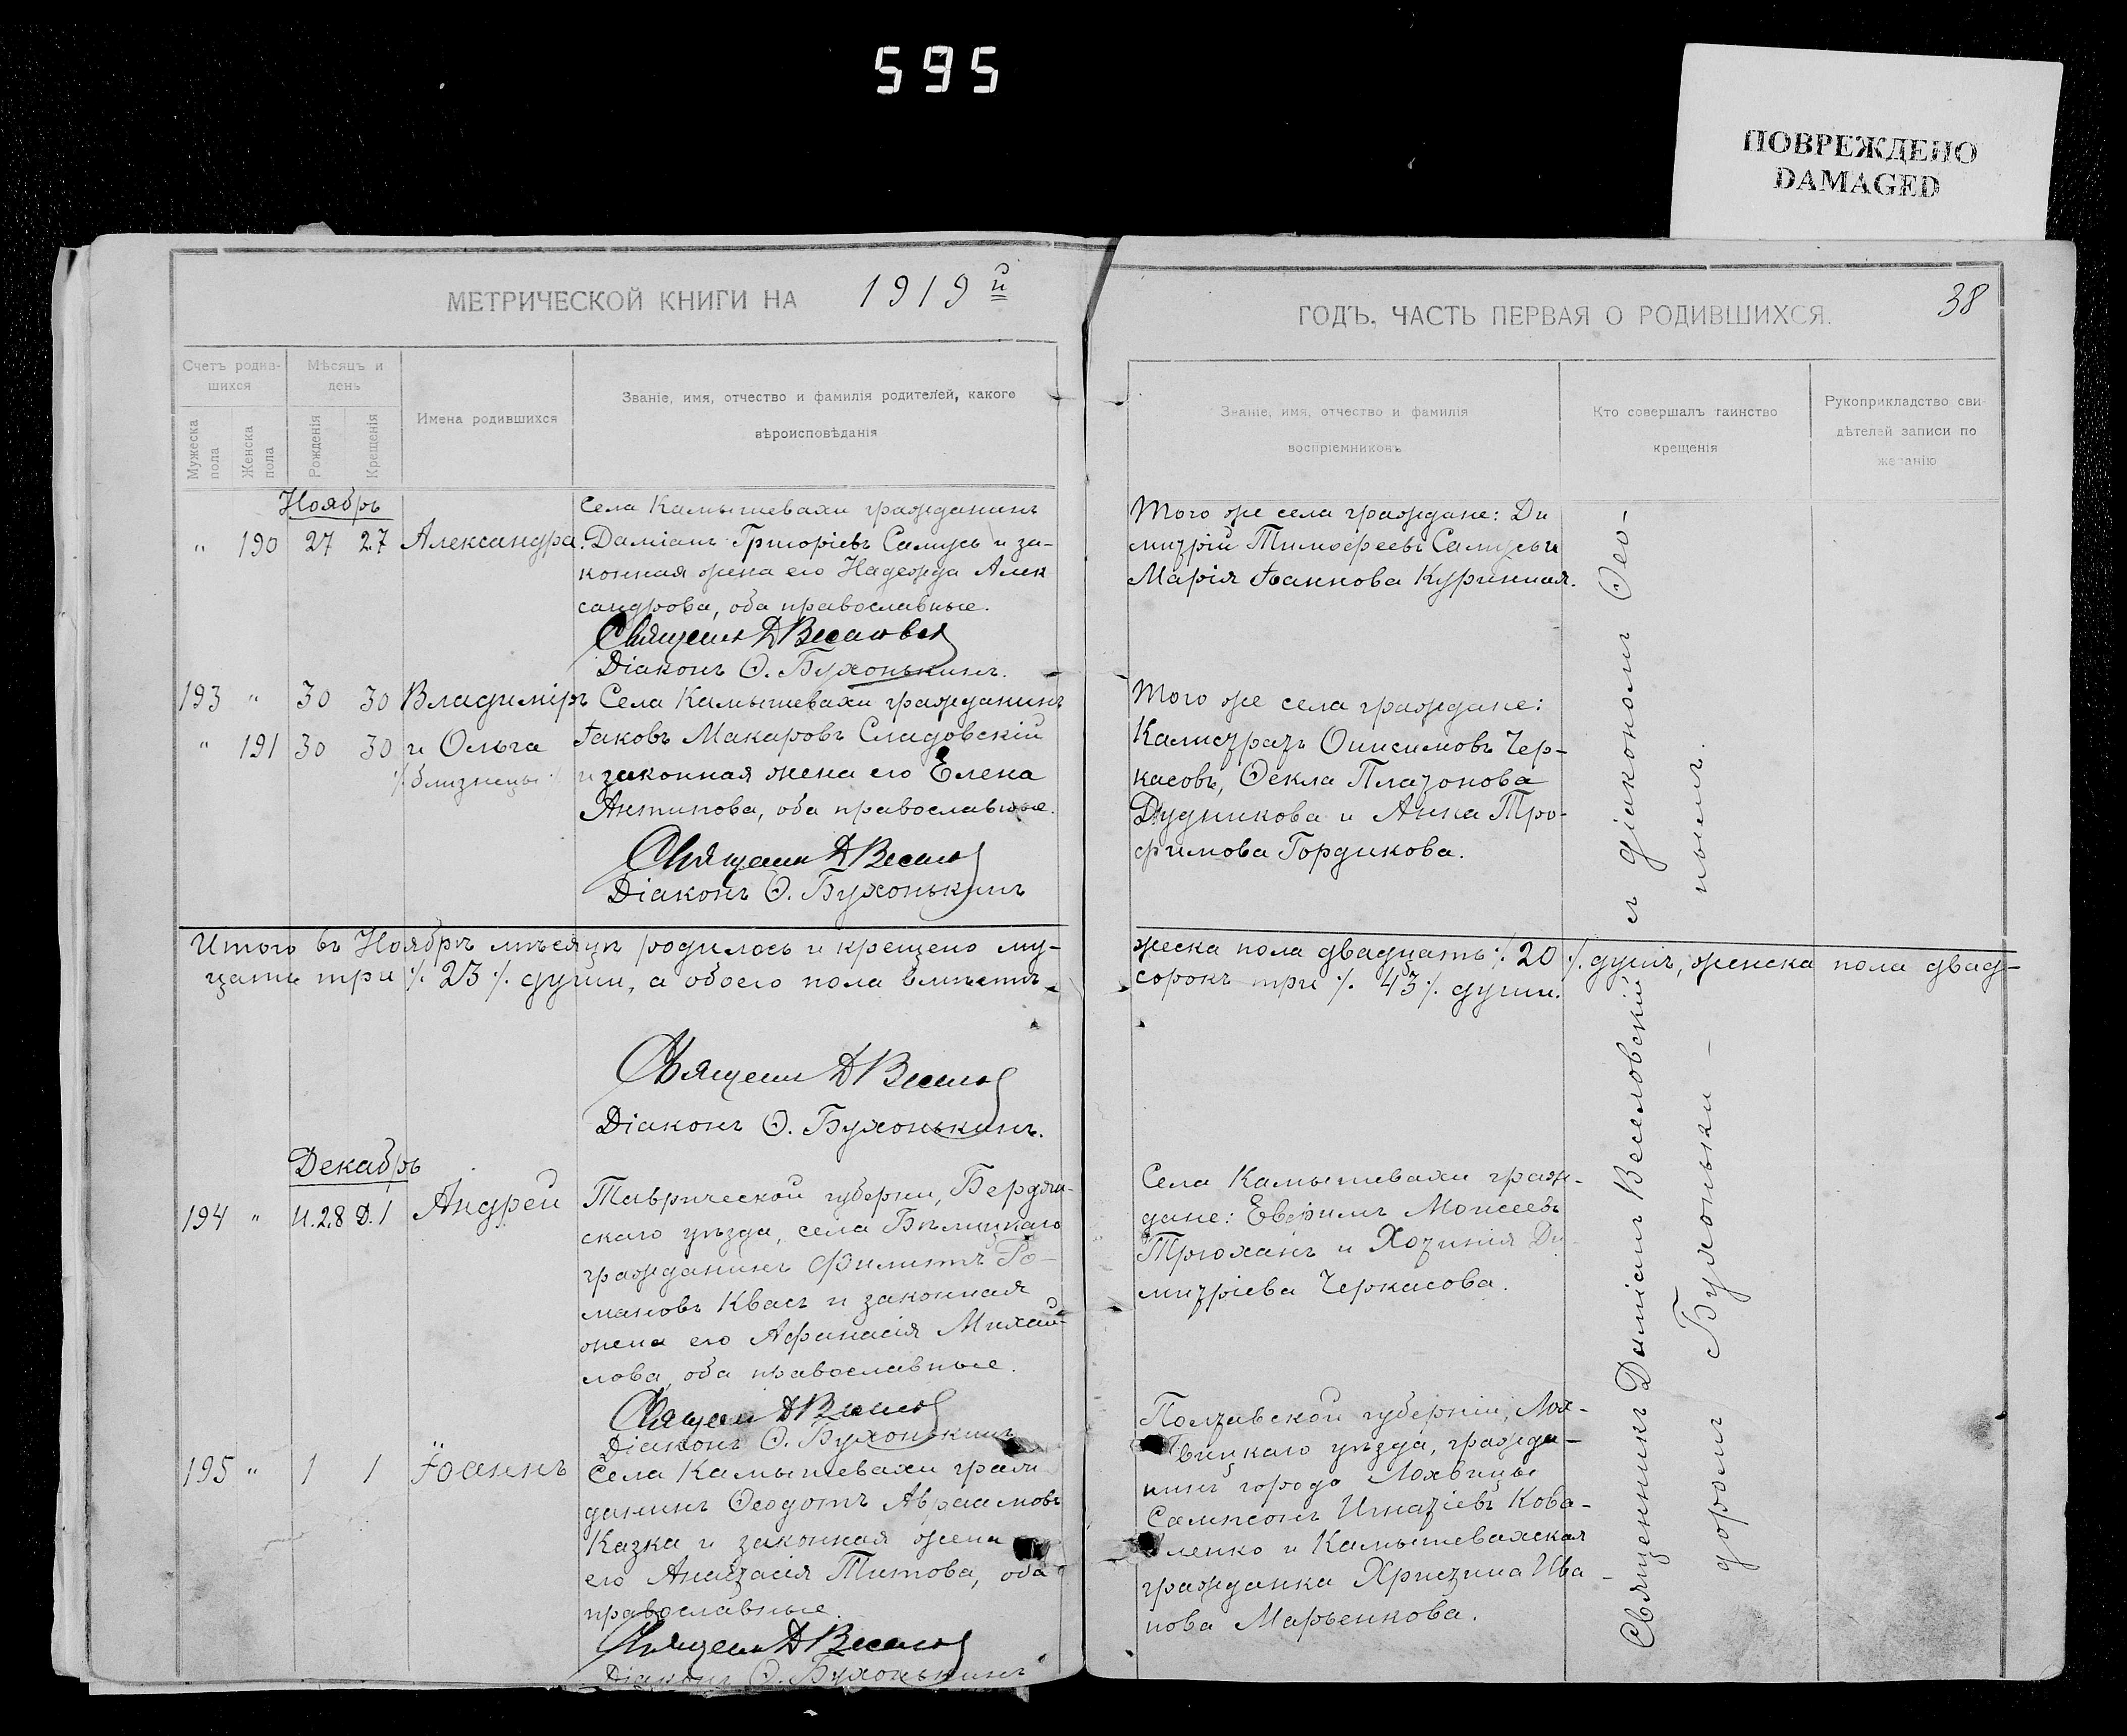 595
ПОВРЕЖДЕНО
DAMAGED
МЕТРИЧЕСКОЙ КНИГИ НА 1919й
ГОДЪ, ЧАСТЬ ПЕРВАЯ О РОДИВШИХСЯ.
38
Счетъ родив-
шихся
Мужеска пола
Женска пола
Мѣсяцъ и
день
Рожденія
Крещенія
Имена родившихся
Званіе, имя, отчество и фамилія родителей, какого
вѣроисповѣданія
Званіе, имя, отчество и фамилія
воспріемниковъ
Кто совершалъ таинство
крещенія
Рукоприкладство сви-
дѣтелей записи по
желанію
Ноябрь
" 190 27 27 Александра.
Села Камышевахи гражданинъ
Даміанъ Григоріевъ Самусь и за-
конная жена его Надежда Алек
сандрова, оба православные.
Священ Д Веселовск
Діаконъ Ѳ. Бухонькинъ.
Того же села граждане: Ди
митрій Тимоѳеевъ Самусь и
Марія Іоаннова Куринная.
193 " 30 30 Владиміръ
" 191 30 30 и Ольга
/. близнецы ./
Села Камышевахи гражданинъ
Іаковъ Макаровъ Сладовскій
и законная жена его Елена
Антипова, оба православные.
Священ Д Весело
Діаконъ Ѳ. Бухонькинъ
Того же села граждане:
Калистратъ Онисимовъ Чер-
касовъ, Ѳекла Платонова
Дудникова и Анна Тро-
фимова Гордикова.
Итого въ Ноябрѣ мѣсяцѣ родилось и крещено му-
жеска пола двадцать /. 20 ./. душъ, женска пола двад-
цать три /. 23 /. души, а обоего пола вмѣстѣ
сорокъ три /. 43 /. души.
Священ Д Весело
Діаконъ Ѳ. Бухонькинъ.
Декабрь
194 " Н.28 Д.1 Андрей
Таврической губерніи, Бердян-
скаго уѣзда, села Бѣлицкаго
гражданинъ Филиппъ Ро-
мановъ Квасъ и законная
жена его Афанасія Михай-
лова, оба православные.
Священ Д Весело
Діаконъ Ѳ. Бухонькинъ
Села Камышевахи граж-
дане: Евфимъ Моисеевъ
Трюханъ и Хотинія Ди-
митріева Черкасова.
195 " 1 1 Іоаннъ
Села Камышевахи граж
данинъ Ѳеодотъ Авраамовъ
Казка и законная жена
его Анастасія Титова, оба
православные.
Священ Д Весело
Діаконъ Ѳ. Бухонькинъ
Полтавской губерніи, Лох-
вицкаго уѣзда, гражда-
нинъ города Лохвицы
Сампсонъ Игнатіевъ Кова-
ленко и Камышевахская
гражданка Христина Ива-
нова Марьенкова.
Священникъ Даміанъ Веселовскій съ діакономъ Ѳео-
доромъ Бухоньки-
нымъ.